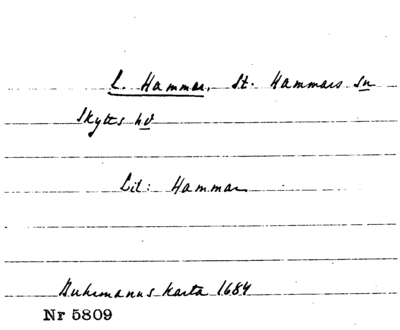 L. Hammar, St. Hammars sn
Skytts hd
Lil: Hammar
Buhrmanns karta 1684
Nr 5809